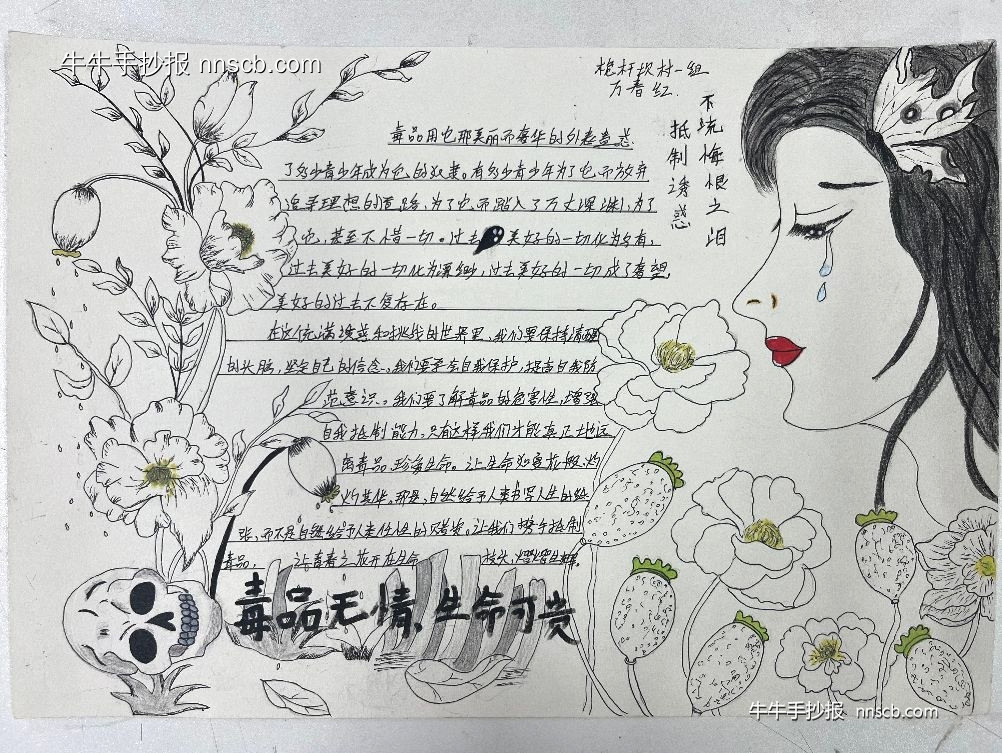 牛牛手抄报 nnscb.com
桅杆坝村一组
万春红
不流悔恨之泪
抵制诱惑
毒品用它那美丽而奢华的外表迷惑
了多少青少年成为它的奴隶。有多少青少年为了它而放弃
追寻理想的道路,为了它而踏入了万丈深渊,为了
它,甚至不惜一切。过去美好的一切化为乌有,
过去美好的一切化为漂渺,过去美好的一切成了奢望,
美好的过去不复存在。
在这充满诱惑和挑战的世界里,我们要保持清醒
的头脑,坚定自己的信念。我们要学会自我保护,提高自我防
范意识。我们要了解毒品的危害性,增强
自我抵制能力。只有这样我们才能真正地远
离毒品,珍爱生命。让生命如夏花般灼
灼其华。那是自然给予人类书写人生的纸
张,而不是自然给予人类任性的赌资。让我们携手抵制
毒品,让青春之花开在生命枝头,熠熠生辉。
毒品无情、生命可贵
牛牛手抄报 nnscb.com